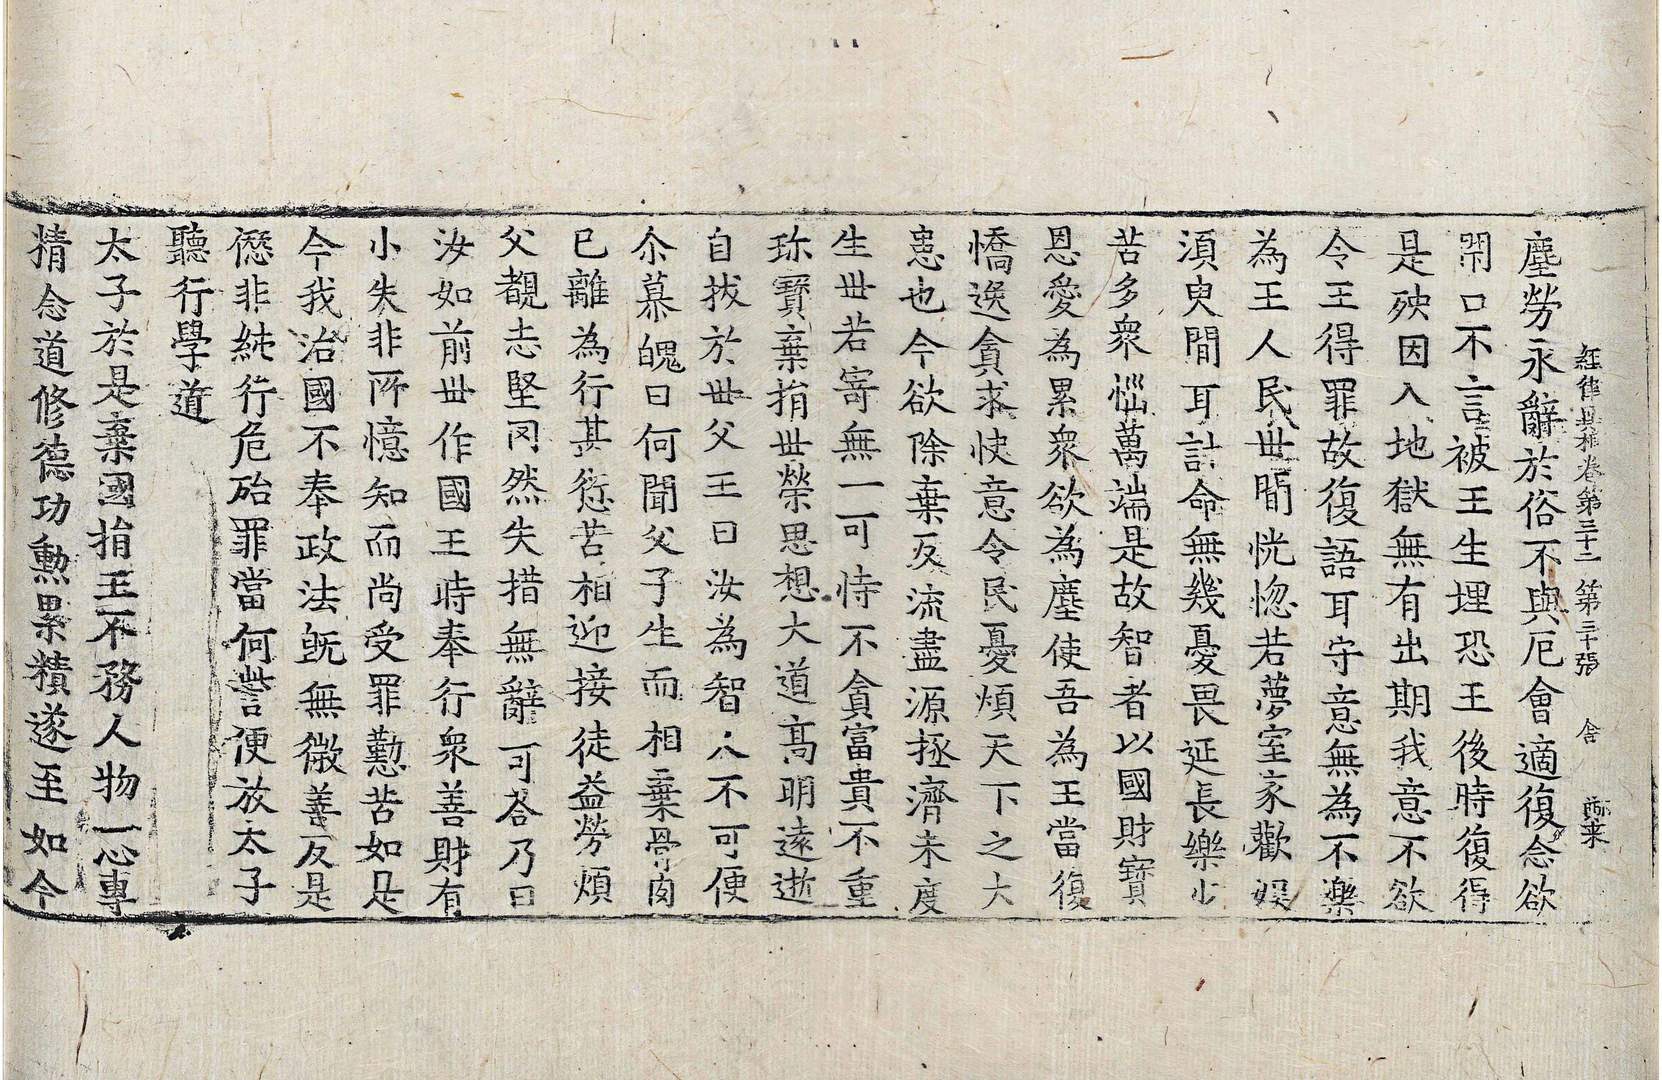 經律異相卷第三十二 第三十張 舍
塵勞永辭於俗不與厄會適復念欲
閇口不言被王生埋恐王後時復得
是殃因入地獄無有出期我意不欲
令王得罪故復語耳守意無為不樂
為王人民世間恍惚若夢室家歡娛
須臾間耳計命無幾憂畏延長樂少
苦多衆惱萬端是故智者以國財寶
恩愛為累衆欲為塵使吾為王當復
憍逸貪求快意令民憂煩天下之大
患也今欲除棄反流盡源拯濟未度
生世若寄無一可恃不貪富貴不重
珎寶棄捐世榮思想大道高明遠逝
自拔於世父王曰汝為智人不可便
尒慕愧曰何聞父子生而相棄骨肉
已離為行甚愆苦相迎接徒益勞煩
父覩志堅罔然失措無辭可荅乃曰
汝如前世作國王時奉行衆善財有
小失非所憶知而尚受罪懃苦如是
今我治國不奉政法旣無微善反是
愆非純行危殆罪當何訾便放太子
聽行學道
太子於是棄國捐王不務人物一心專
精念道修德功勲累積遂至如今